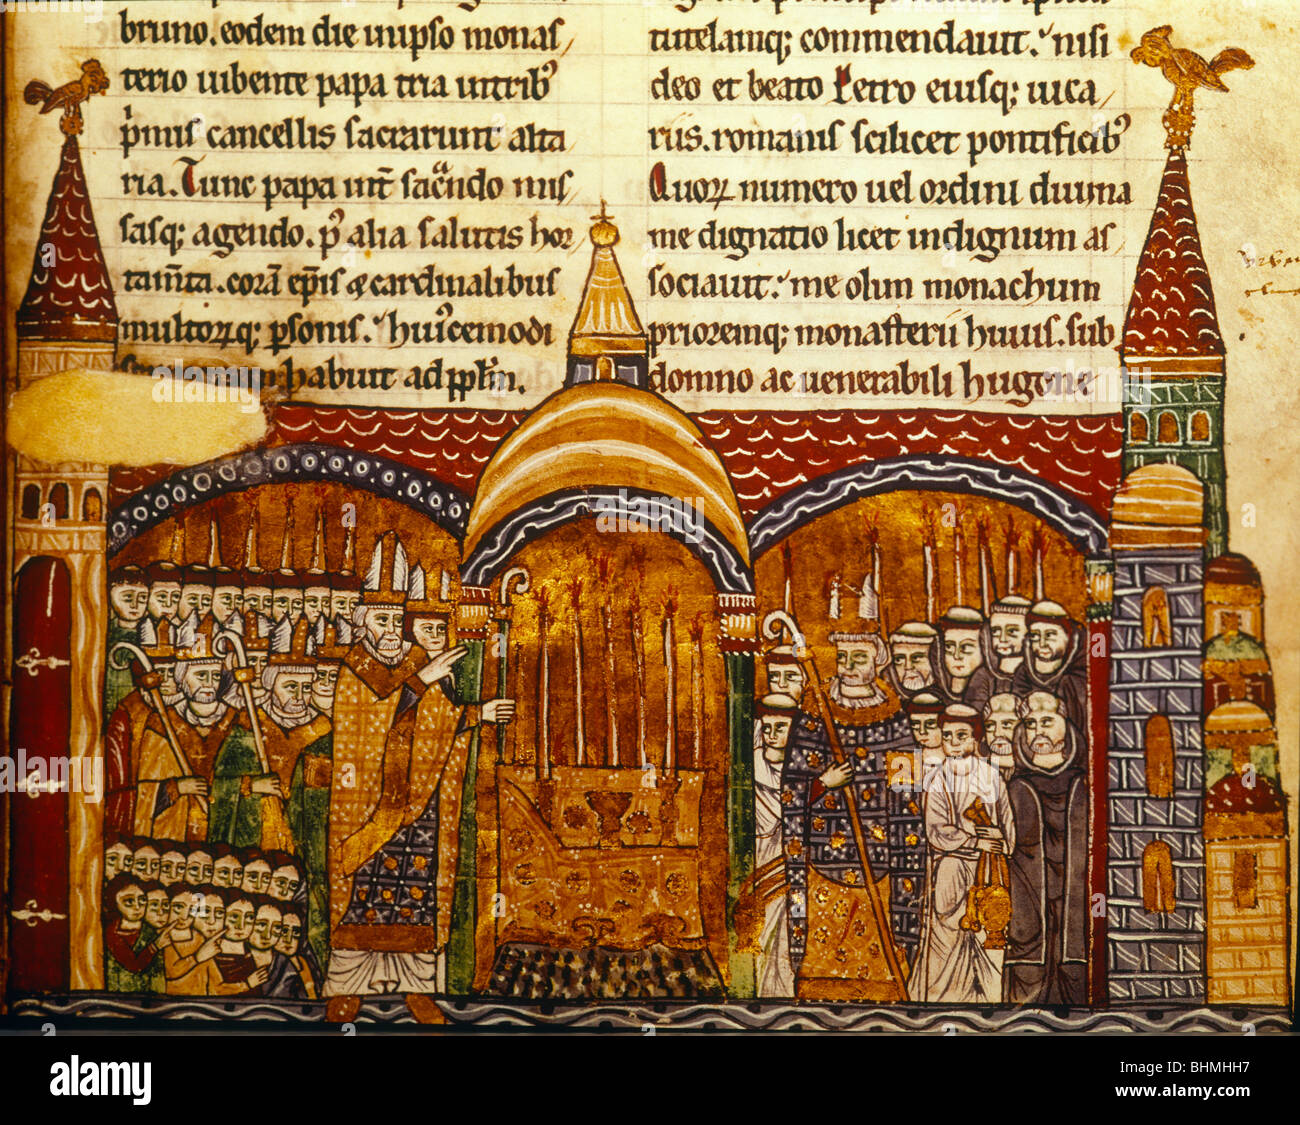 bruno. eodem die in ipso monas/
terio iubente papa tria in trib᾽
p̃mis cancellis sacrarunt alta
ria. Tunc papa int̃ sac̃ndo mis/
sasq; agendo. p᾽ alia salutis hor/
tam̃ta. corã ep̃is ⁊ cardinalibus
multorꝝq; ꝑsonis. huiꝰcemodi
habuit ad ppl̃m.
tutelamq; commendauit. nisi
deo et beato Petro eiusq; uica/
riis. romanis scilicet pontificib᾽
Quoꝝ numero uel ordini diuina
me dignatio licet indignum as/
sociauit. me olim monachum
prioremq; monasterii huius. sub
domno ac uenerabili hugone
alamy
Image ID: BHMHH7
www.alamy.com